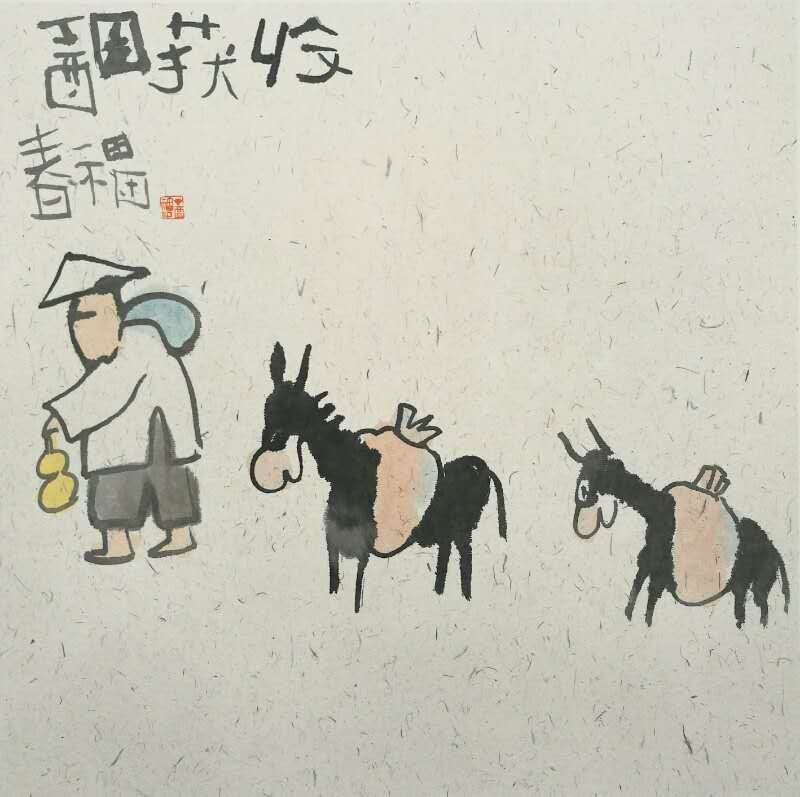 收获图丁酉
春福